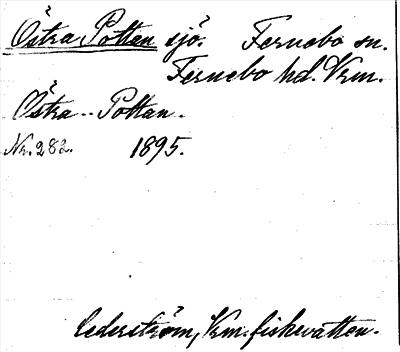 Östra Pottan sjö. Fernebo sn.
Fernebo hd. Vrm.
Östra - Pottan.
Nr. 282. 1895.
Cederström, Vrm. fiskevatten.